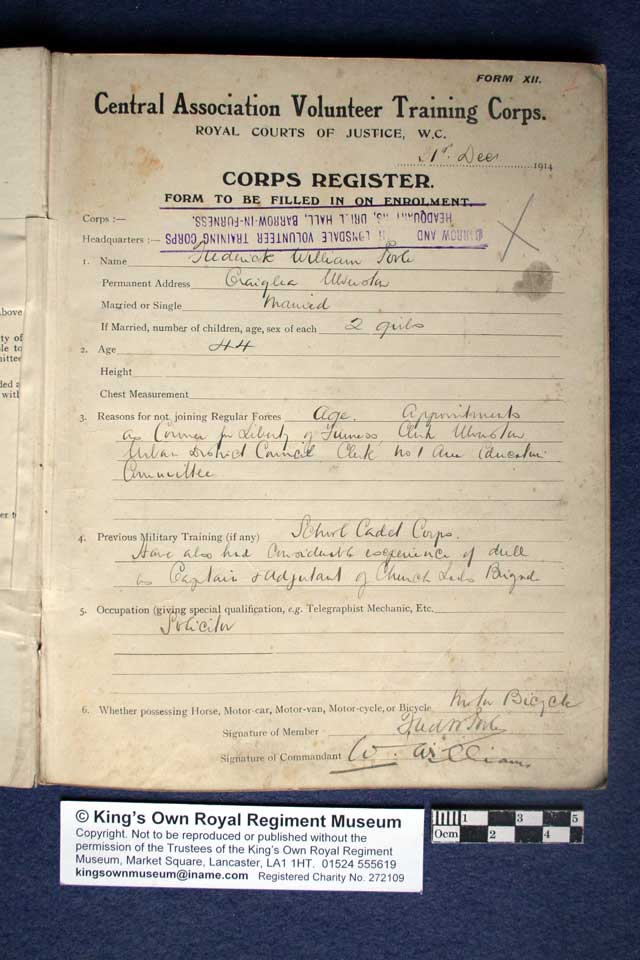 FORM XII.
Central Association Volunteer Training Corps.
ROYAL COURTS OF JUSTICE, W.C.
21st Decr 1914
CORPS REGISTER.
FORM TO BE FILLED IN ON ENROLMENT.
Corps :—
HEADQUARTERS, DRILL HALL, BARROW-IN-FURNESS.
Headquarters :—
BARROW AND N LONSDALE VOLUNTEER TRAINING CORPS
1. Name Frederick William Poole
Permanent Address Craiglea Ulverston
Married or Single Married
If Married, number of children, age, sex of each 2 girls
2. Age 44
Height
Chest Measurement
3. Reasons for not joining Regular Forces Age. Appointments
as Coroner for Liberty of Furness, Clerk Ulverston
Urban District Council Clerk No 1 Area Education
Committee
4. Previous Military Training (if any) School Cadet Corps.
Have also had considerable experience of drill
as Captain & Adjutant of Church Lads Brigade
5. Occupation (giving special qualification, e.g. Telegraphist Mechanic, Etc.
Solicitor
6. Whether possessing Horse, Motor-car, Motor-van, Motor-cycle, or Bicycle Motor Bicycle
Signature of Member Fred W Poole
Signature of Commandant W. Williams
above
ty of
le to
mittee
ded a
with
er t
© King's Own Royal Regiment Museum
Copyright. Not to be reproduced or published without the
permission of the Trustees of the King's Own Royal Regiment
Museum, Market Square, Lancaster, LA1 1HT. 01524 555619
kingsownmuseum@iname.com Registered Charity No. 272109
1 3 5
0cm 2 4